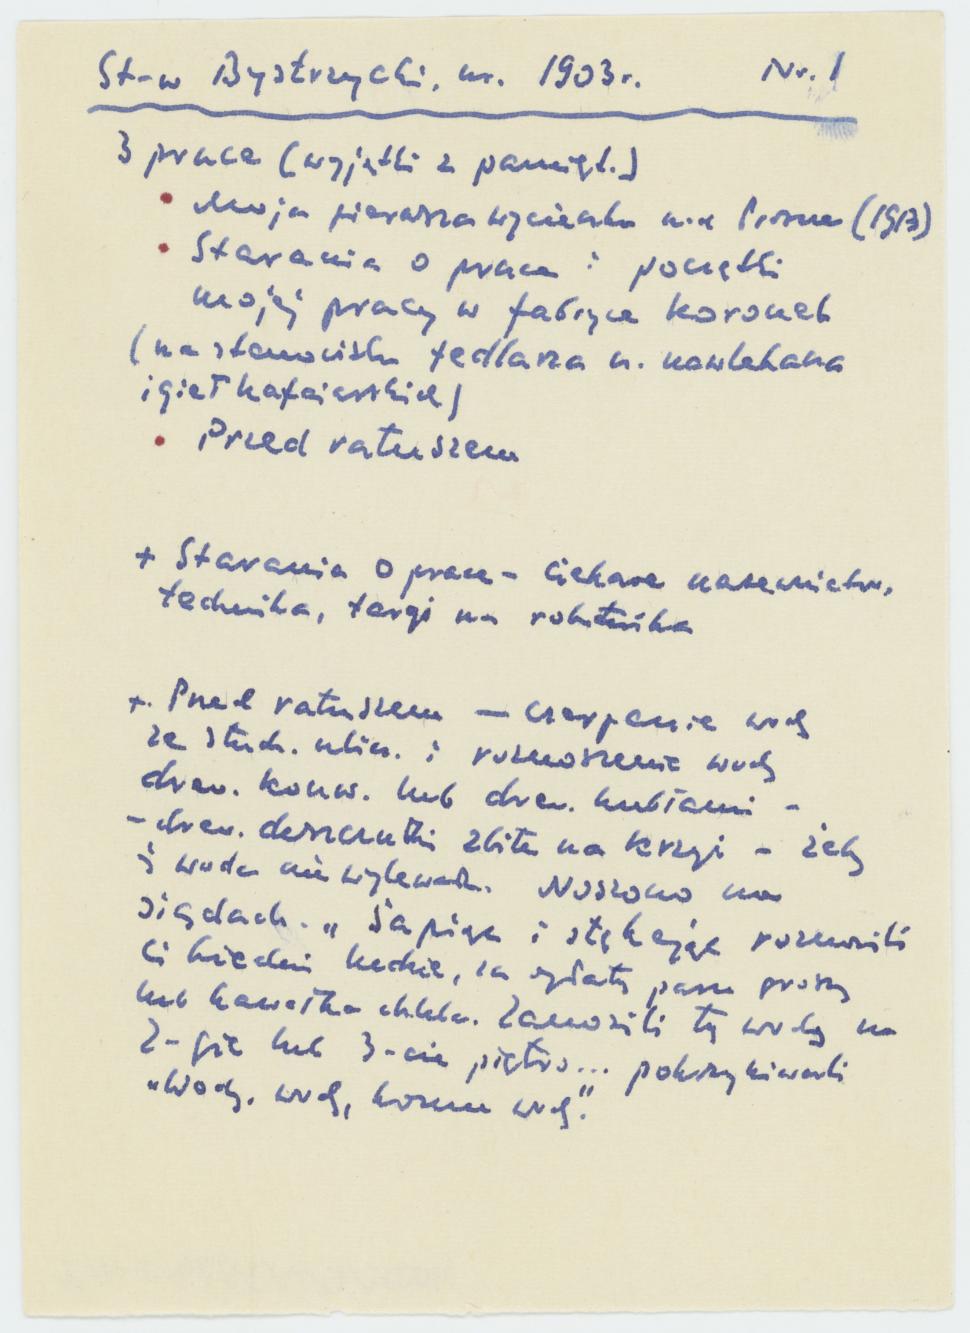 St-w Bystrzycki, ur. 1903 r. Nr. 1
3 prace (wyjątki z pamięt.)
• Moja pierwsza wycieczka nad Prosnę (1913)
• Starania o pracę i początki
mojej pracy w fabryce koronek
(na stanowisku fedlarza n. nawlekana
igieł hafciarskich)
• Przed ratuszem
+ Starania o pracę – ciekawe nazewnictwo,
technika, targi na robotnika
+. Przed ratuszem — czerpanie wody
ze stud. ulicz. i roznoszenie wody
drew. konw. lub drew. kubłami -
- drew. deszczułki zbite na krzyż – żeby
woda nie wylewała. Noszono na
siądach. „Sapiąc i stękając roznosili
ci biedni ludzie, za opłatą paru groszy
lub kawałka chleba. Zanosili tę wodę na
2-gie lub 3-cie piętro... pokrzykiwali
„Wody, wody, komu wody."